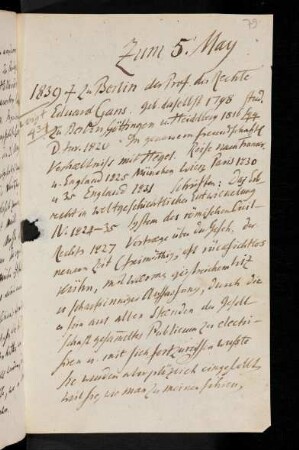 79
Zum 5. May
1839 † Zu Berlin der Prof. der Rechte
Eduard Gans. geb. daselbst 1798 Stud.
Zu Berlin, Göttingen u Heidelberg 1816
D. Jur. 1820 In genauem freundschaftl.
Verhältniss mit Hegel. Reise nach Frankr.
u. England 1825 München Wien Paris 1830
u 35 England 1831 Schriften: Das Erb
recht in weltgeschichtlicher Entwickelung
IV. 1824–35 System des römischen Civil
Rechts 1827 Vorträge über die Gesch. der
neuen Zeit (freimüthig, oft rücksichtslos
kühn, mit geistreichem Witz
u scharfsinniger Auffassung, durch die
er sein aus allen Ständen der Gesell-
schaft gesammeltes Publicum zu electri-
siren u. mit sich fortzureissen wusste
Sie wurden aber plötzlich eingestellt